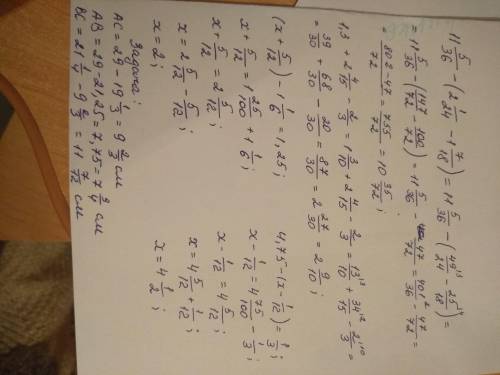 11 5/36 − (2 1/24 − 1 7/18) = 11 5/36 − (49\3/24 − 25\4/18) =
= 11 5/36 − (147/72 − 100/72) = 11 5/36 − 47/72 = 401\2/36 − 47/72 =
802−47/72 = 755/72 = 10 35/72;
1,3 + 2 4/15 − 2/3 = 1 3/10 + 2 4/15 − 2/3 = 13\3/10 + 34\2/15 − 2\10/3 =
= 39/30 + 68/30 − 20/30 = 87/30 = 2 27/30 = 2 9/10;
(x + 5/12) − 1 1/6 = 1,25;
x + 5/12 = 1 25/100 + 1 1/6;
x + 5/12 = 2 5/12;
x = 2 5/12 − 5/12;
x = 2;
4,75 − (x − 1/12) = 1/3;
x − 1/12 = 4 75/100 − 1/3;
x − 1/12 = 4 5/12;
x = 4 5/12 + 1/12;
x = 4 1/2;
Задача:
AC = 29 − 19 1/3 = 9 2/3 см
AB = 29 − 21,25 = 7,75 = 7 3/4 см
BC = 21 1/4 − 9 2/3 = 11 7/12 см